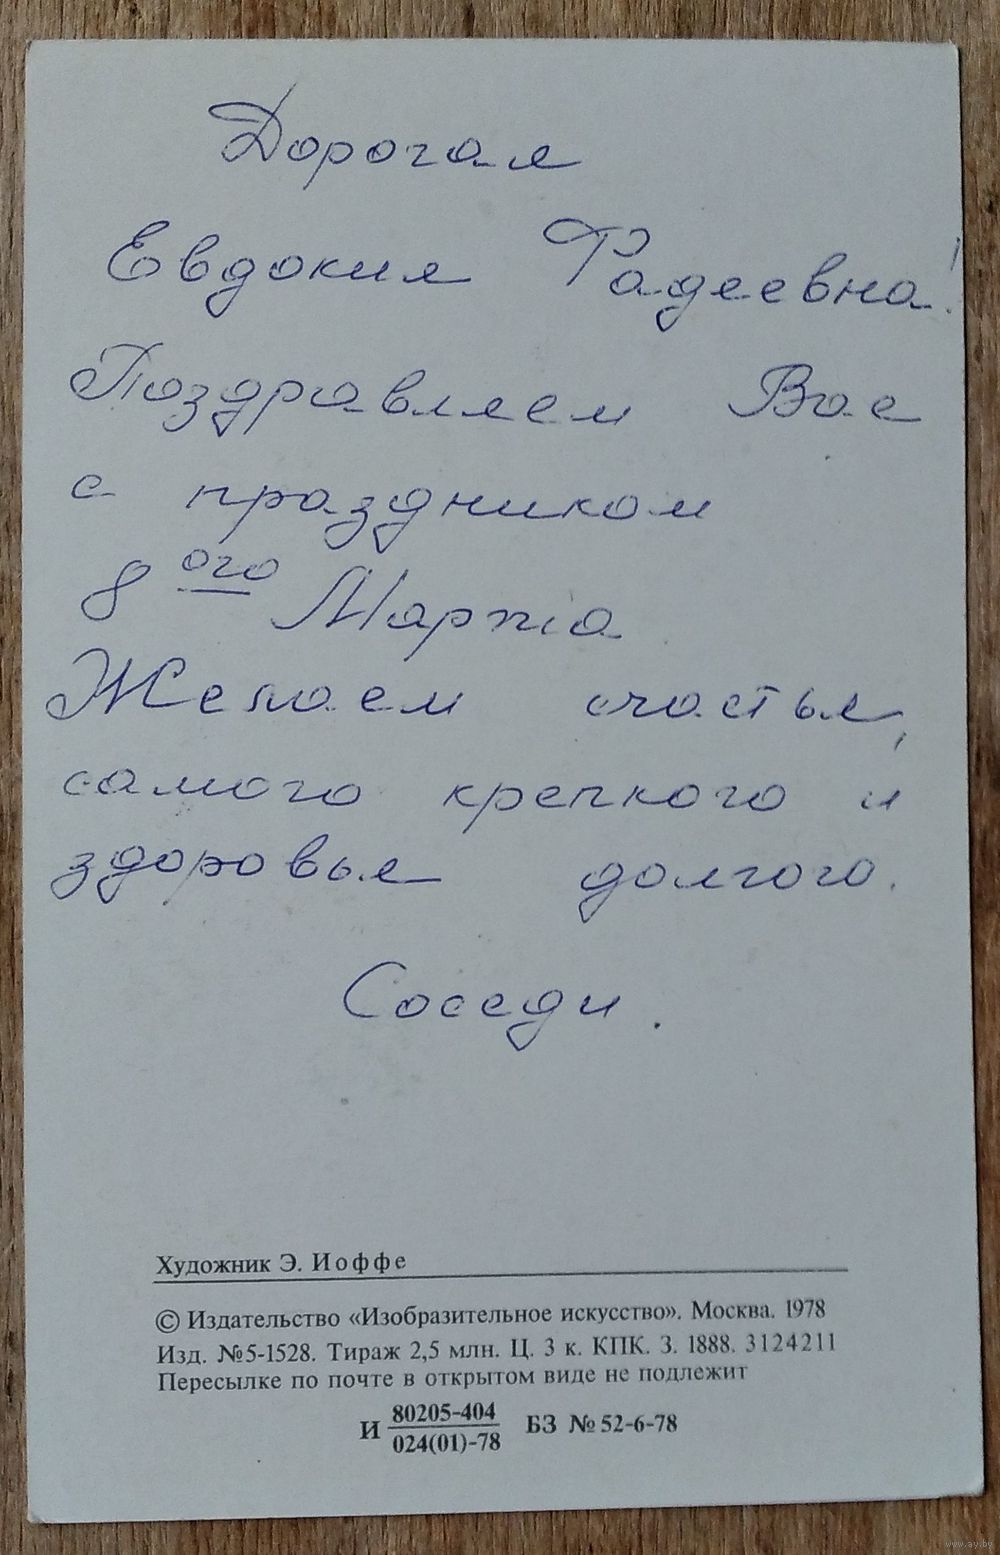 Дорогая
Евдокия Фадеевна!
Поздравляем Вас
с праздником
8ого Марта
Желаем счастья,
самого крепкого и
здоровья долгого.
Соседи.
Художник Э. Иоффе
© Издательство «Изобразительное искусство». Москва. 1978
Изд. №5-1528. Тираж 2,5 млн. Ц. 3 к. КПК. З. 1888. 3124211
Пересылке по почте в открытом виде не подлежит
И 80205-404 БЗ № 52-6-78
024(01)-78
www.ay.by